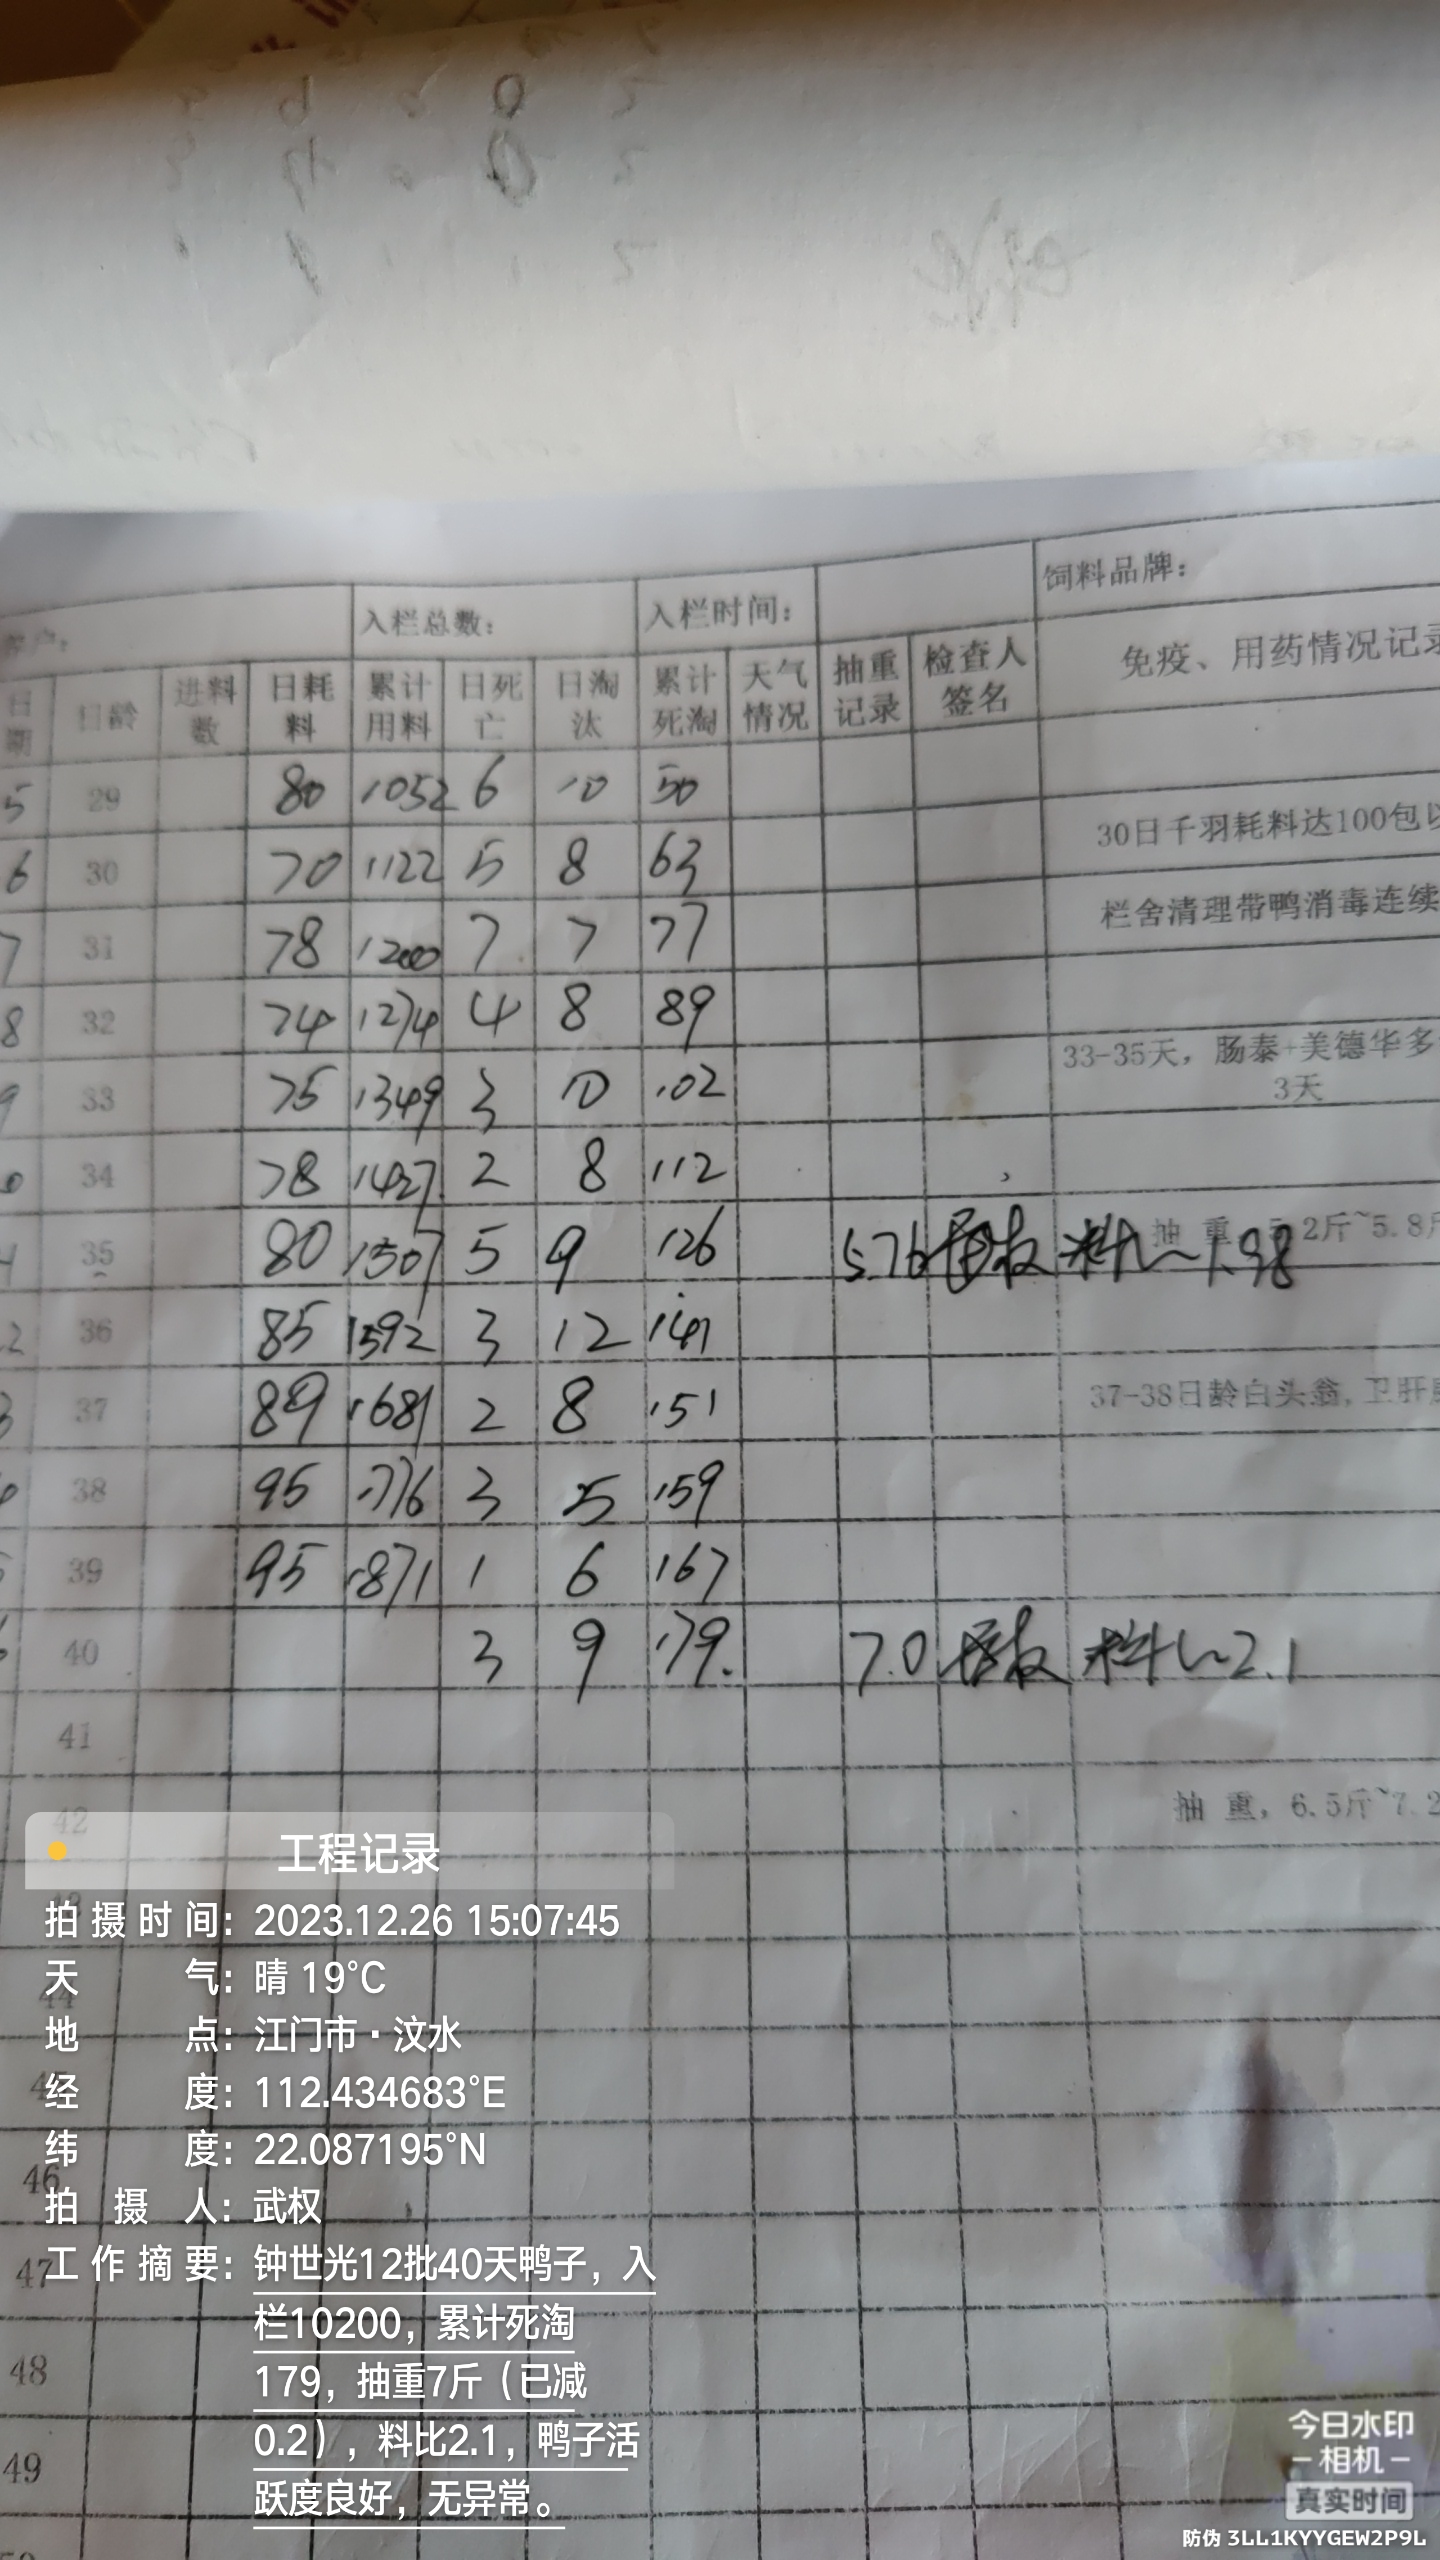 入栏总数： 入栏时间： 饲料品牌：
日龄 进料数 日耗料 累计用料 日死亡 日淘汰 累计死淘 天气情况 抽重记录 检查人签名 免疫、用药情况记录
5 29 80 1052 6 10 50
6 30 70 1122 5 8 63 30日千羽耗料达100包以
7 31 78 1200 7 7 77 栏舍清理带鸭消毒连续
8 32 74 1274 4 8 89
9 33 75 1349 3 10 102 33-35天，肠泰+美德华多
3天
34 78 1427 2 8 112
35 80 1507 5 9 126 5.76 武权 料比~1.98 抽重，5.2斤~5.8斤
36 85 1592 3 12 141
37 89 1681 2 8 151 37-38日龄白头翁，卫肝
38 95 1776 3 5 159
39 95 1871 1 6 167
40 3 9 179. 7.0 武权 料比~2.1
41
42 抽重，6.5斤~7.2
44
46
47
48
49
工程记录
拍摄时间：2023.12.26 15:07:45
天气：晴 19°C
地点：江门市·汶水
经度：112.434683°E
纬度：22.087195°N
拍摄人：武权
工作摘要：钟世光12批40天鸭子，入
栏10200，累计死淘
179，抽重7斤（已减
0.2），料比2.1，鸭子活
跃度良好，无异常。
今日水印
-相机-
真实时间
防伪 3LL1KYYGEW2P9L